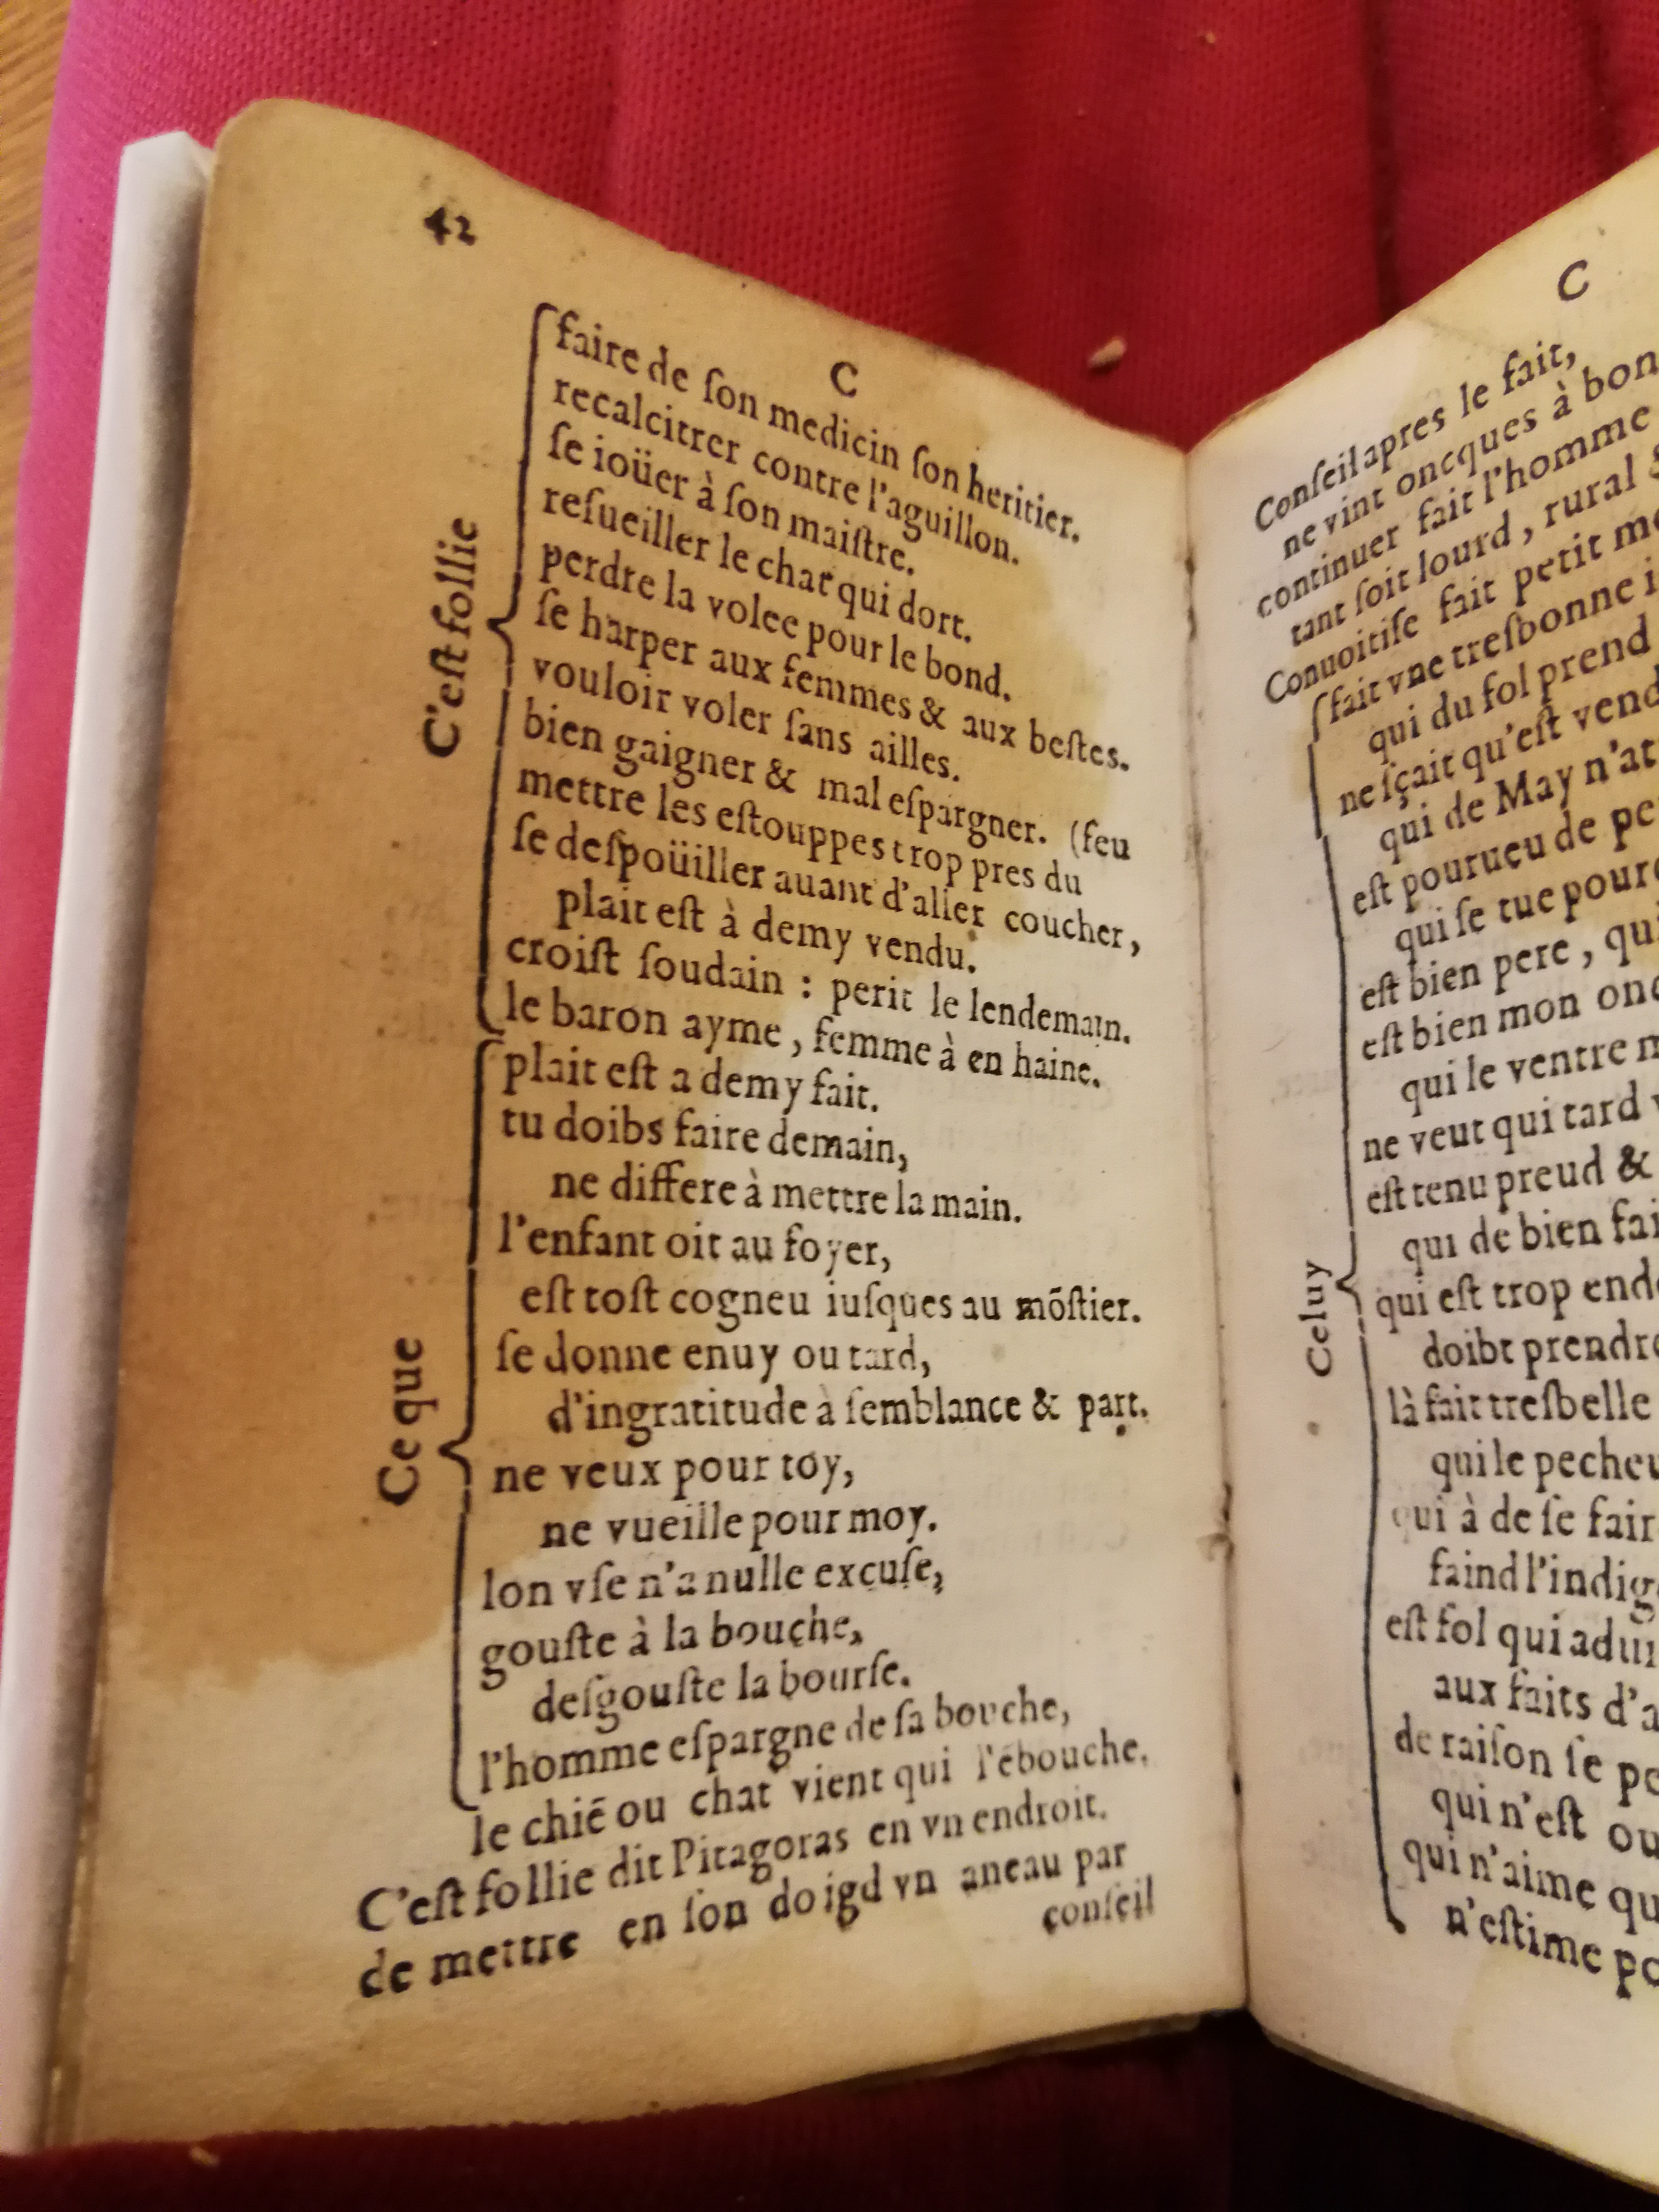 42
C
C'eſt follie
faire de ſon medicin ſon heritier.
recalcitrer contre l'aguillon.
ſe ioüer à ſon maiſtre.
reſueiller le chat qui dort.
perdre la volee pour le bond.
ſe harper aux femmes & aux beſtes.
vouloir voler ſans ailles.
bien gaigner & mal eſpargner. (feu
mettre les eſtouppes trop pres du
ſe deſpoüiller auant d'aller coucher,
plait eſt à demy vendu.
croiſt ſoudain : perit le lendemain.
le baron ayme, femme à en haine.
Ce que
plait eſt a demy fait.
tu doibs faire demain,
ne differe à mettre la main.
l'enfant oit au foyer,
eſt toſt cogneu iuſques au mõſtier.
ſe donne enuy ou tard,
d'ingratitude à ſemblance & part.
ne veux pour toy,
ne vueille pour moy.
lon vſe n'a nulle excuſe,
gouſte à la bouche,
deſgouſte la bourſe.
l'homme eſpargne de ſa bouche,
le chiẽ ou chat vient qui l'ébouche.
C'eſt follie dit Pitagoras en vn endroit.
de mettre en ſon doigd vn aneau par
conſeil
C
Conſeil apres le fait,
ne vint oncques à bon
continuer fait l'homme
tant ſoit lourd, rural
Conuoitiſe fait petit
Celuy
fait vne treſbonne
qui du fol prend
ne ſçait qu'eſt
qui de May
eſt pourueu de
qui ſe tue
eſt bien pere,
eſt bien mon
qui le ventre
ne veut qui tard
eſt tenu preud &
qui de bien
qui eſt trop
doibt
là fait treſbelle
qui le
qui à de ſe
faind
eſt fol qui
aux faits
de raiſon ſe
qui n'eſt
qui n'aime
n'eſtime